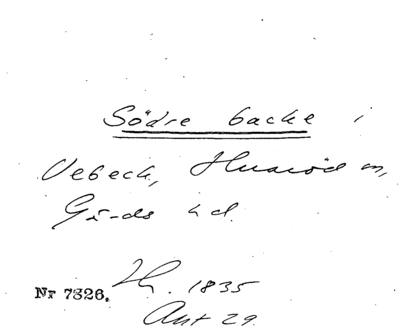 Södre backe i
Vebeck, Huaröd sn,
Gärds hd.
Nr 7326.
1835
Akt 29.